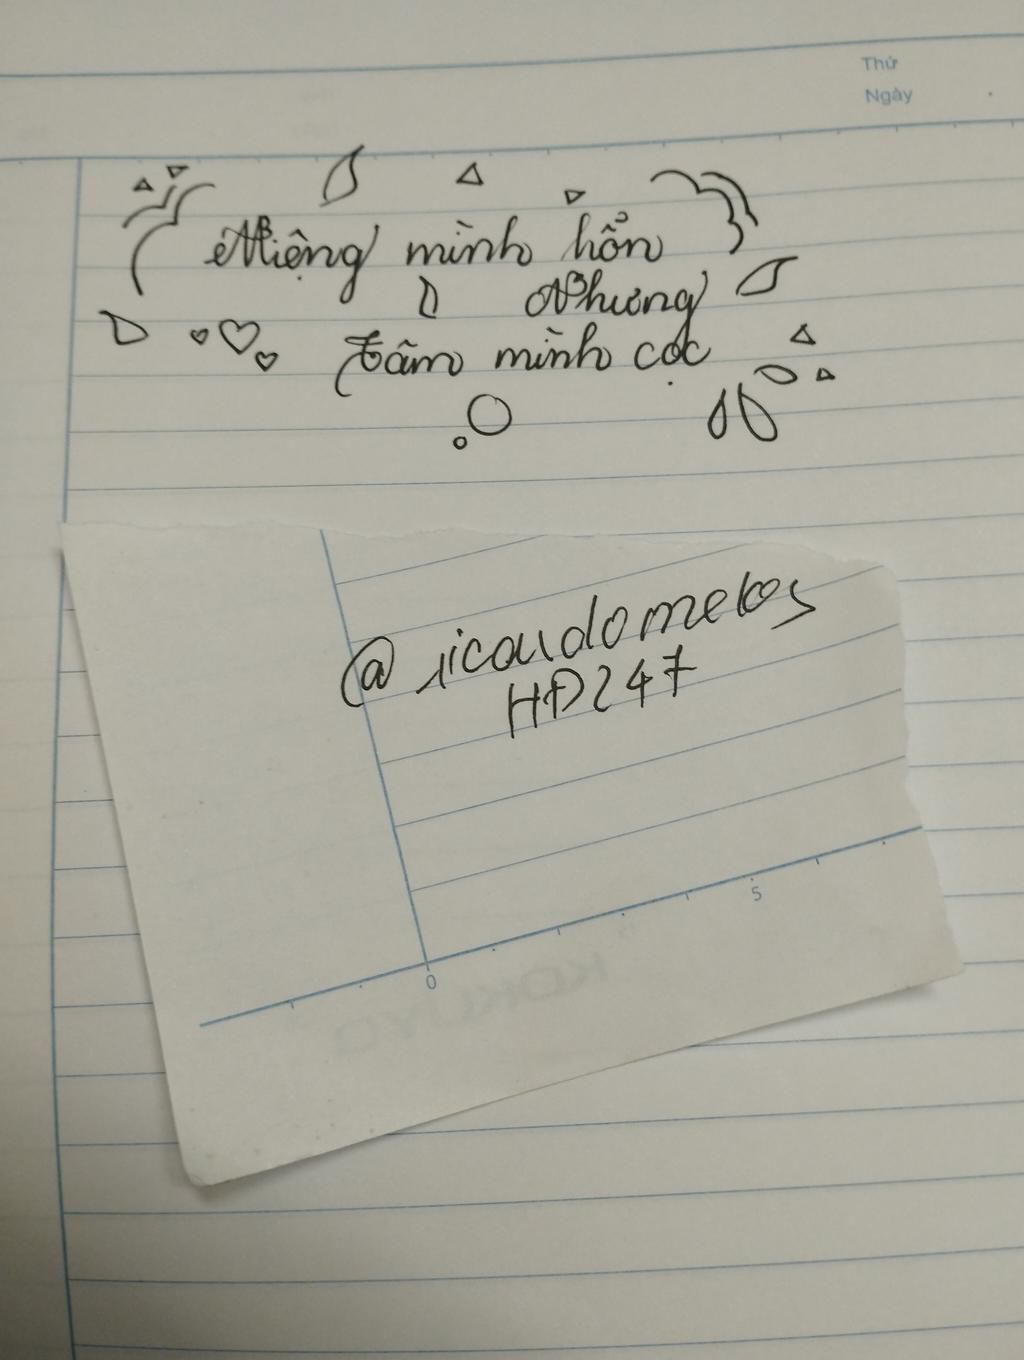 Thứ
Ngày
Miệng mình hổn
Nhưng
tâm mình cọc
@ricardomelos
HĐ247
0
5
KOKUYO